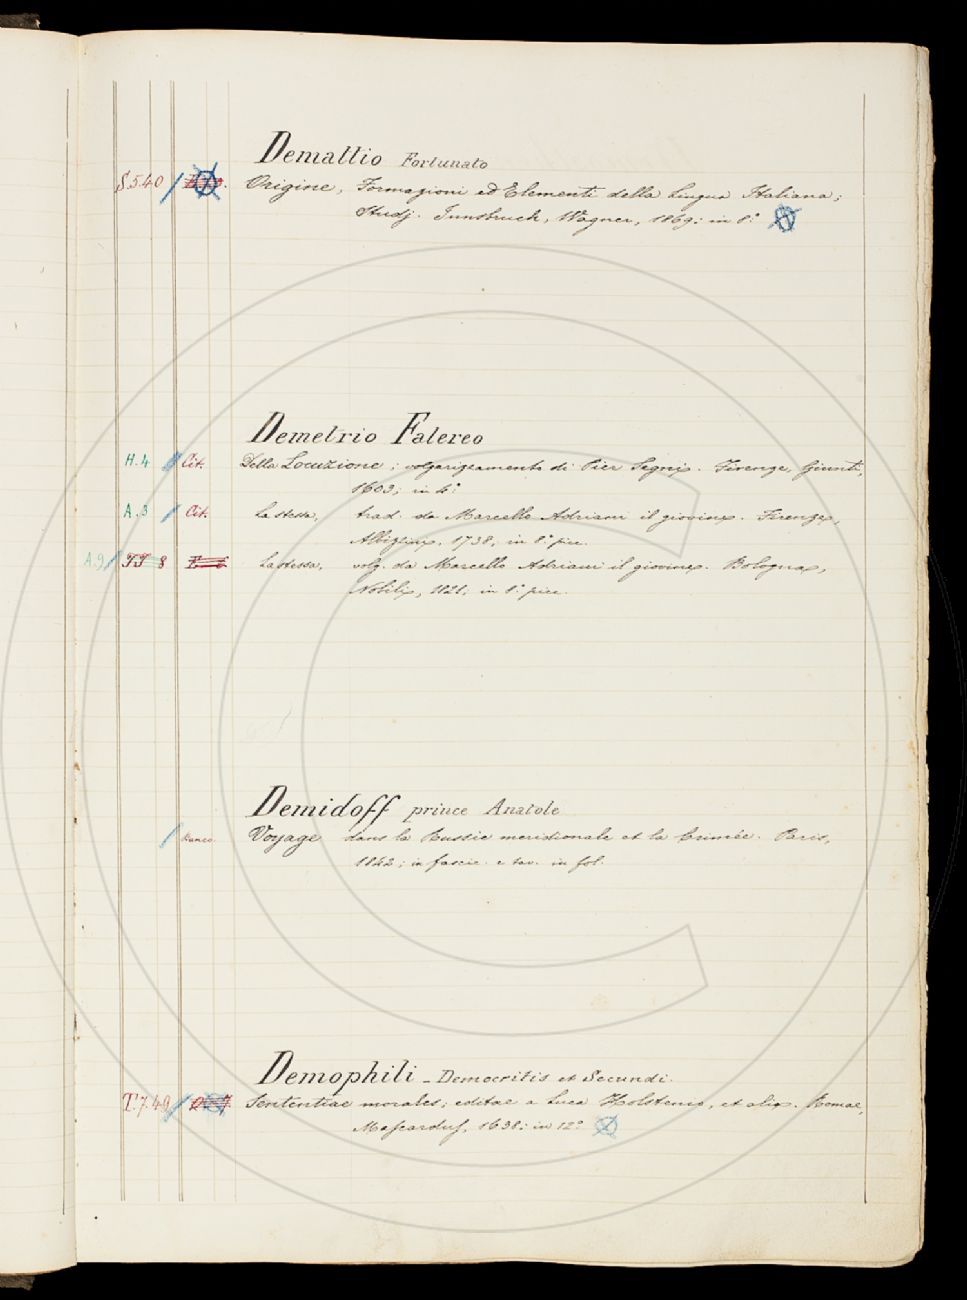 Demattio Fortunato
S.5.40 Origine, Formazioni ed Elementi della Lingua Italiana;
Studj. Innsbruck, Wagner, 1869: in 8.°
Demetrio Falereo
H.4 Cit. Della Locuzione; volgarizzamento di Pier Segni. Firenze, Giunti,
1603; in 4.°
A.3 Cit. La stessa, trad. da Marcello Adriani il giovine. Firenze,
Albizzini, 1738, in 8.° picc.
A.9 TT 8 La stessa, volg. da Marcello Adriani il giovine. Bologna,
Nobili, 1821, in 8.° picc.
Demidoff prince Anatole
Voyage dans la Russie meridionale et la Crimée. Paris,
1842; in fascic. e tav. in fol.
Demophili - Democritis et Secundi.
T.7.49 Sententiae morales; editae a Luca Holstenio, et alia. Romae,
Mascardus, 1638: in 12.°